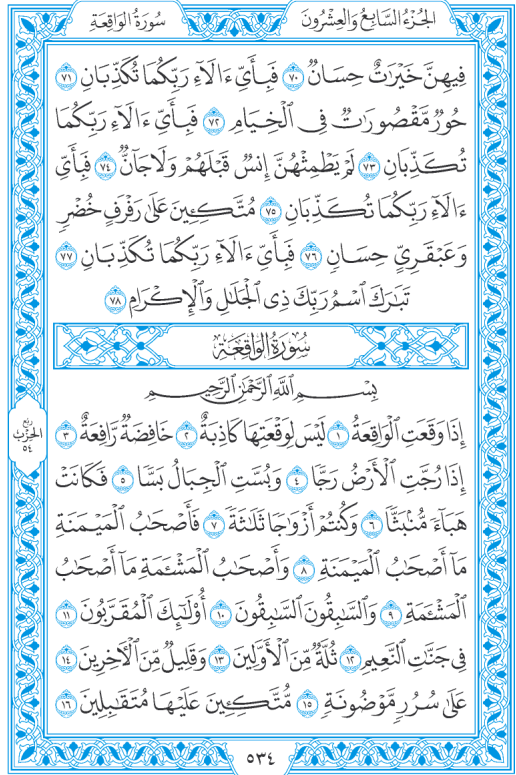 الجُزْءُ السَّابِعُ وَالعِشْرُونَ
سُورَةُ الوَاقِعَةِ
فِيهِنَّ خَيْرَٰتٌ حِسَانٌ ٧٠ فَبِأَيِّ ءَالَآءِ رَبِّكُمَا تُكَذِّبَانِ ٧١
حُورٌ مَّقْصُورَٰتٌ فِي ٱلْخِيَامِ ٧٢ فَبِأَيِّ ءَالَآءِ رَبِّكُمَا
تُكَذِّبَانِ ٧٣ لَمْ يَطْمِثْهُنَّ إِنسٌ قَبْلَهُمْ وَلَا جَآنٌّ ٧٤ فَبِأَيِّ
ءَالَآءِ رَبِّكُمَا تُكَذِّبَانِ ٧٥ مُتَّكِـِٔينَ عَلَىٰ رَفْرَفٍ خُضْرٍ
وَعَبْقَرِيٍّ حِسَانٍ ٧٦ فَبِأَيِّ ءَالَآءِ رَبِّكُمَا تُكَذِّبَانِ ٧٧
تَبَٰرَكَ ٱسْمُ رَبِّكَ ذِي ٱلْجَلَٰلِ وَٱلْإِكْرَامِ ٧٨
سُورَةُ الوَاقِعَةِ
بِسْمِ ٱللَّهِ ٱلرَّحْمَٰنِ ٱلرَّحِيمِ
إِذَا وَقَعَتِ ٱلْوَاقِعَةُ ١ لَيْسَ لِوَقْعَتِهَا كَاذِبَةٌ ٢ خَافِضَةٌ رَّافِعَةٌ ٣
إِذَا رُجَّتِ ٱلْأَرْضُ رَجًّا ٤ وَبُسَّتِ ٱلْجِبَالُ بَسًّا ٥ فَكَانَتْ
هَبَآءً مُّنۢبَثًّا ٦ وَكُنتُمْ أَزْوَٰجًا ثَلَٰثَةً ٧ فَأَصْحَٰبُ ٱلْمَيْمَنَةِ
مَآ أَصْحَٰبُ ٱلْمَيْمَنَةِ ٨ وَأَصْحَٰبُ ٱلْمَشْـَٔمَةِ مَآ أَصْحَٰبُ
ٱلْمَشْـَٔمَةِ ٩ وَٱلسَّٰبِقُونَ ٱلسَّٰبِقُونَ ١٠ أُو۟لَٰٓئِكَ ٱلْمُقَرَّبُونَ ١١
فِي جَنَّٰتِ ٱلنَّعِيمِ ١٢ ثُلَّةٌ مِّنَ ٱلْأَوَّلِينَ ١٣ وَقَلِيلٌ مِّنَ ٱلْءَاخِرِينَ ١٤
عَلَىٰ سُرُرٍ مَّوْضُونَةٍ ١٥ مُّتَّكِـِٔينَ عَلَيْهَا مُتَقَٰبِلِينَ ١٦
ربع
الحزب
٥٤
٥٣٤